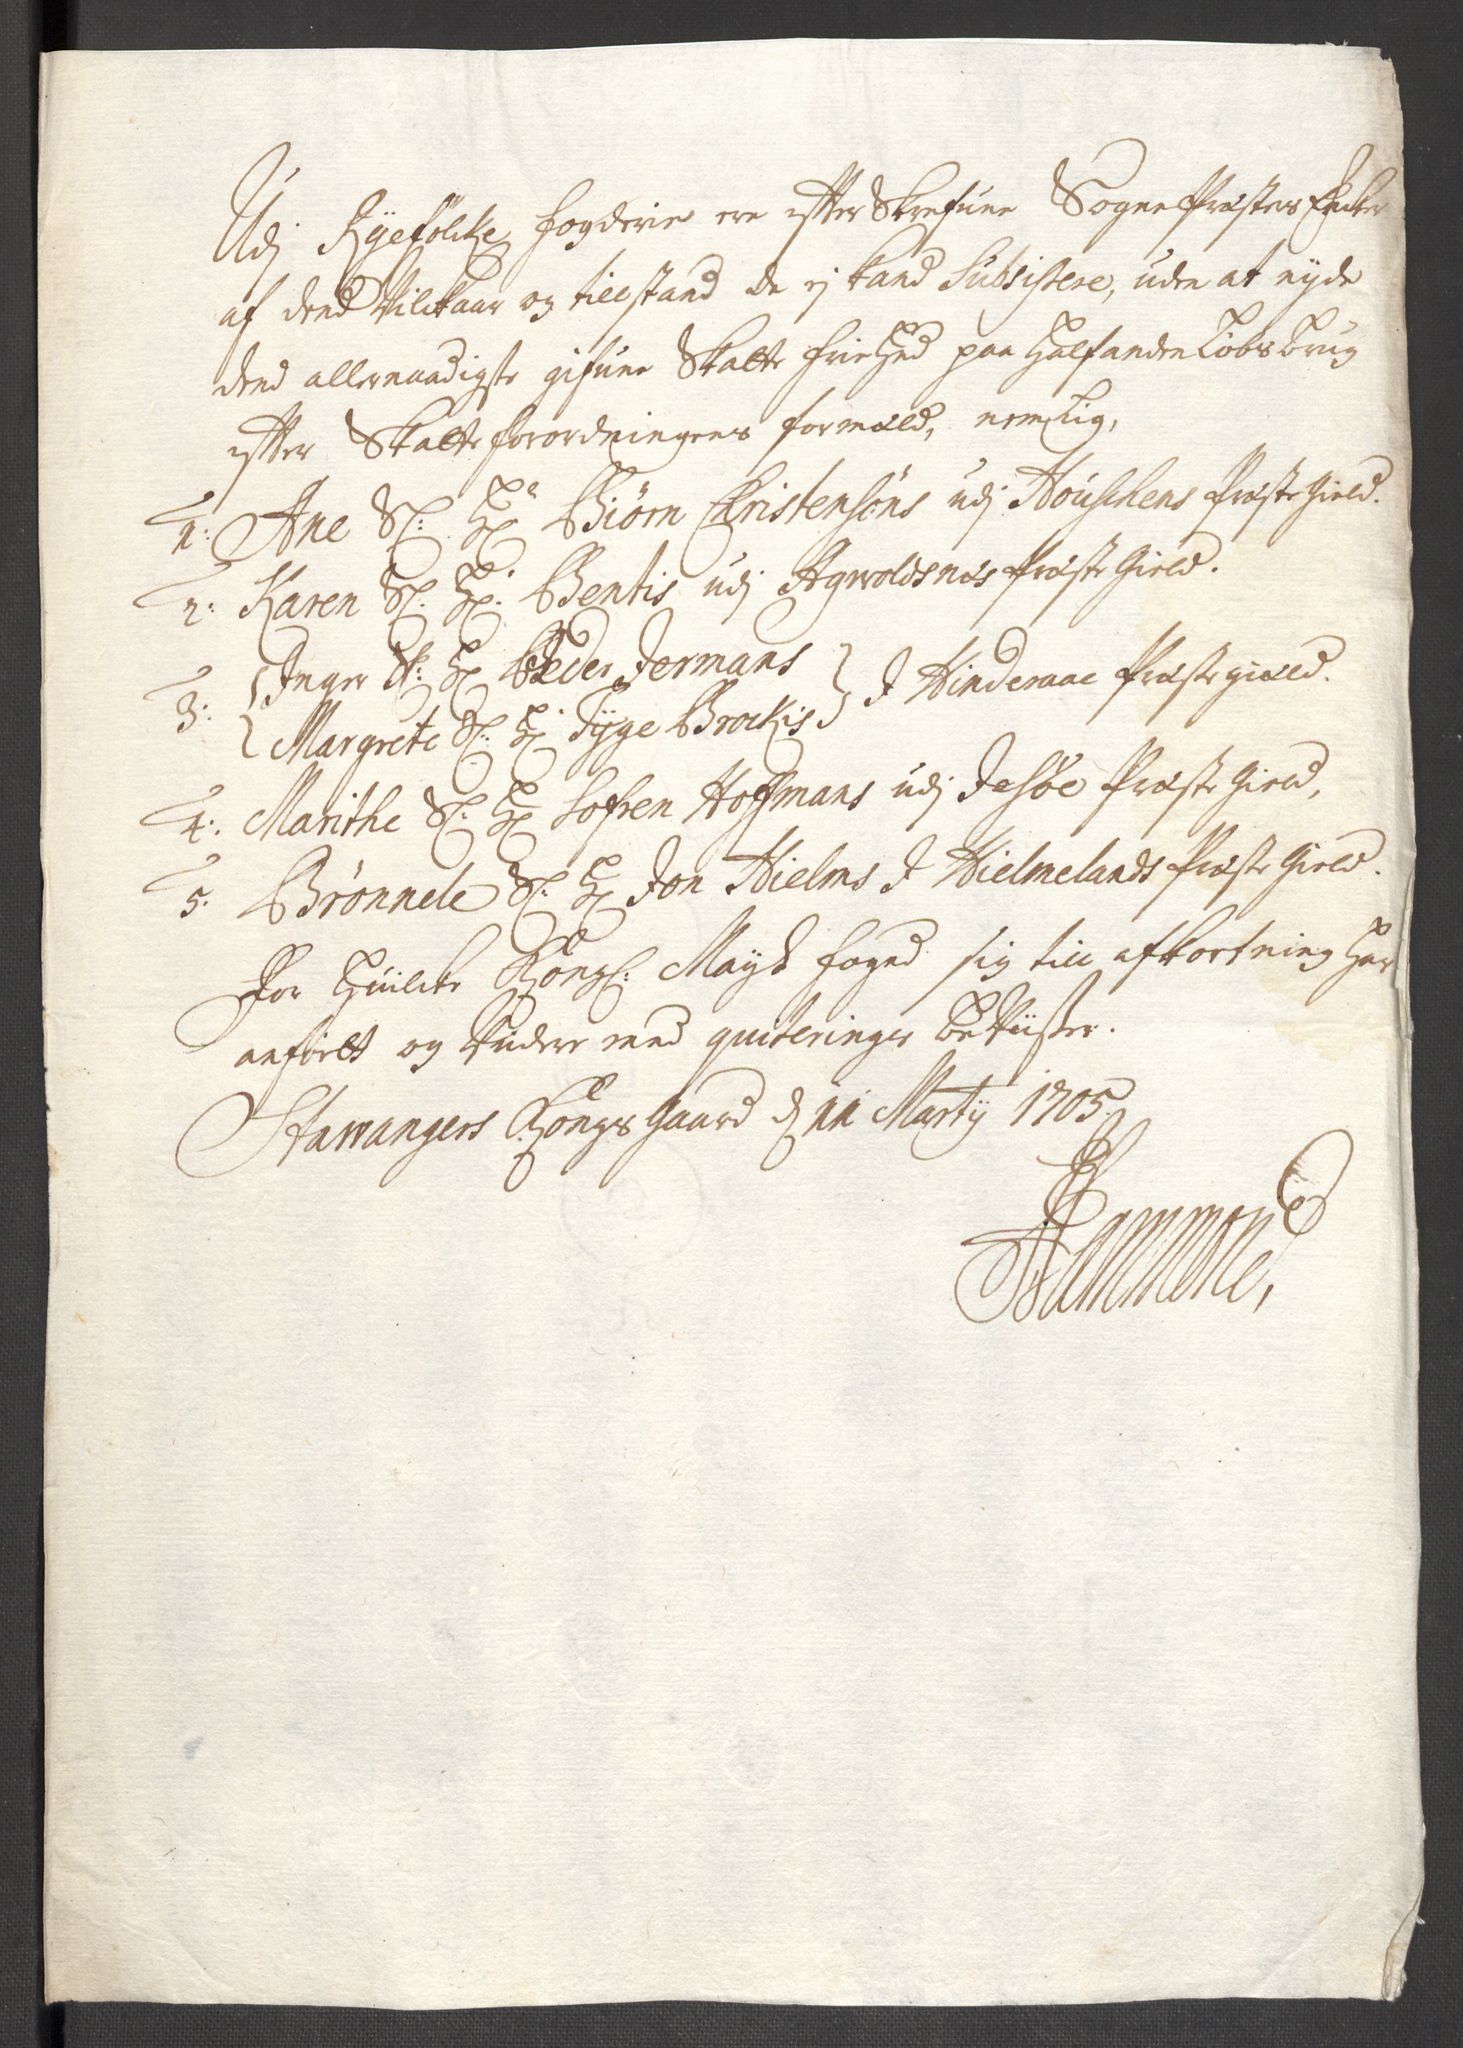 Udj Ryefölcke fogderie ere efterSkrefune Sogne Præsters Encker
af dend Vilckaar og tillstand de ej kand Subsistere, uden at nyde
dend allernaadigste gifune Skatte friehed paa halfanden Löbs brug
efter Skatte forordningens formæld, nemlig,
1: Ane Sl: Hr Biörn Christensöns udj Houschens Præste Gield.
2: Karen Sl: Hr. Bentis udj Agwoldsnæs Præste Gield.
3: Inger Sl: Hr Peder Jermans
Margrete Sl: Hr Tyge Brockis } J Hinderaae Præstegiæld.
4: Marithe Sl: Hr Sofren Hoffmans udj Jelsöe Præste Gield,
5. Brönnele Sl: Hr Jon Hielms J Hielmelands Præste Gield.
For huilcke Kongl: Mayts foged sig till afkortning har
anfört og videre med quiteringer beviister.
Stawangers Kongsgaard d 11 Martij 1705.
Hammond,